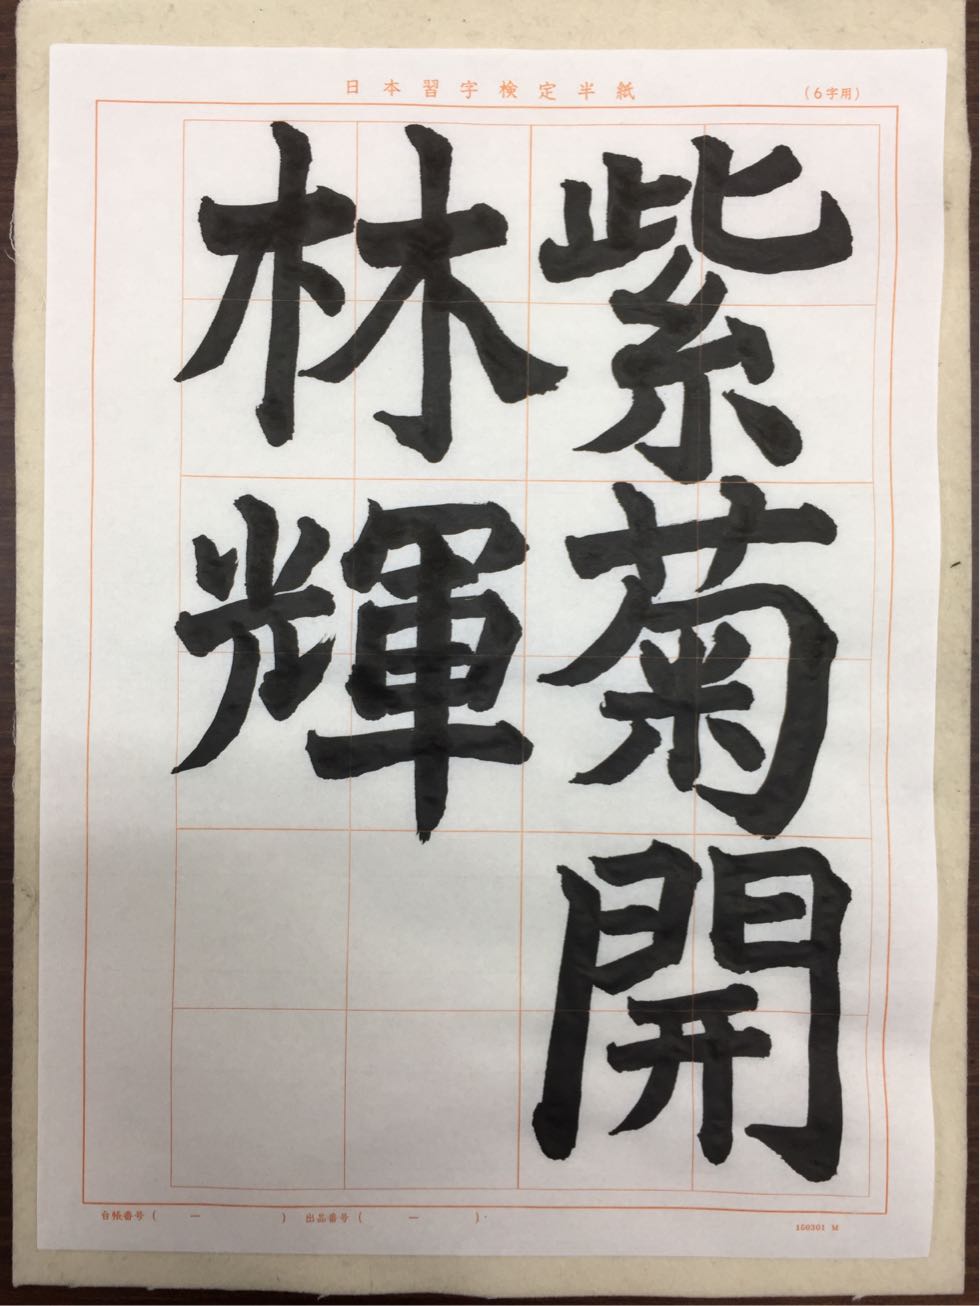 日本習字検定半紙
(6字用)
紫菊開
林輝
台帳番号(　　—　　) 出品番号(　　—　　).
150301 M